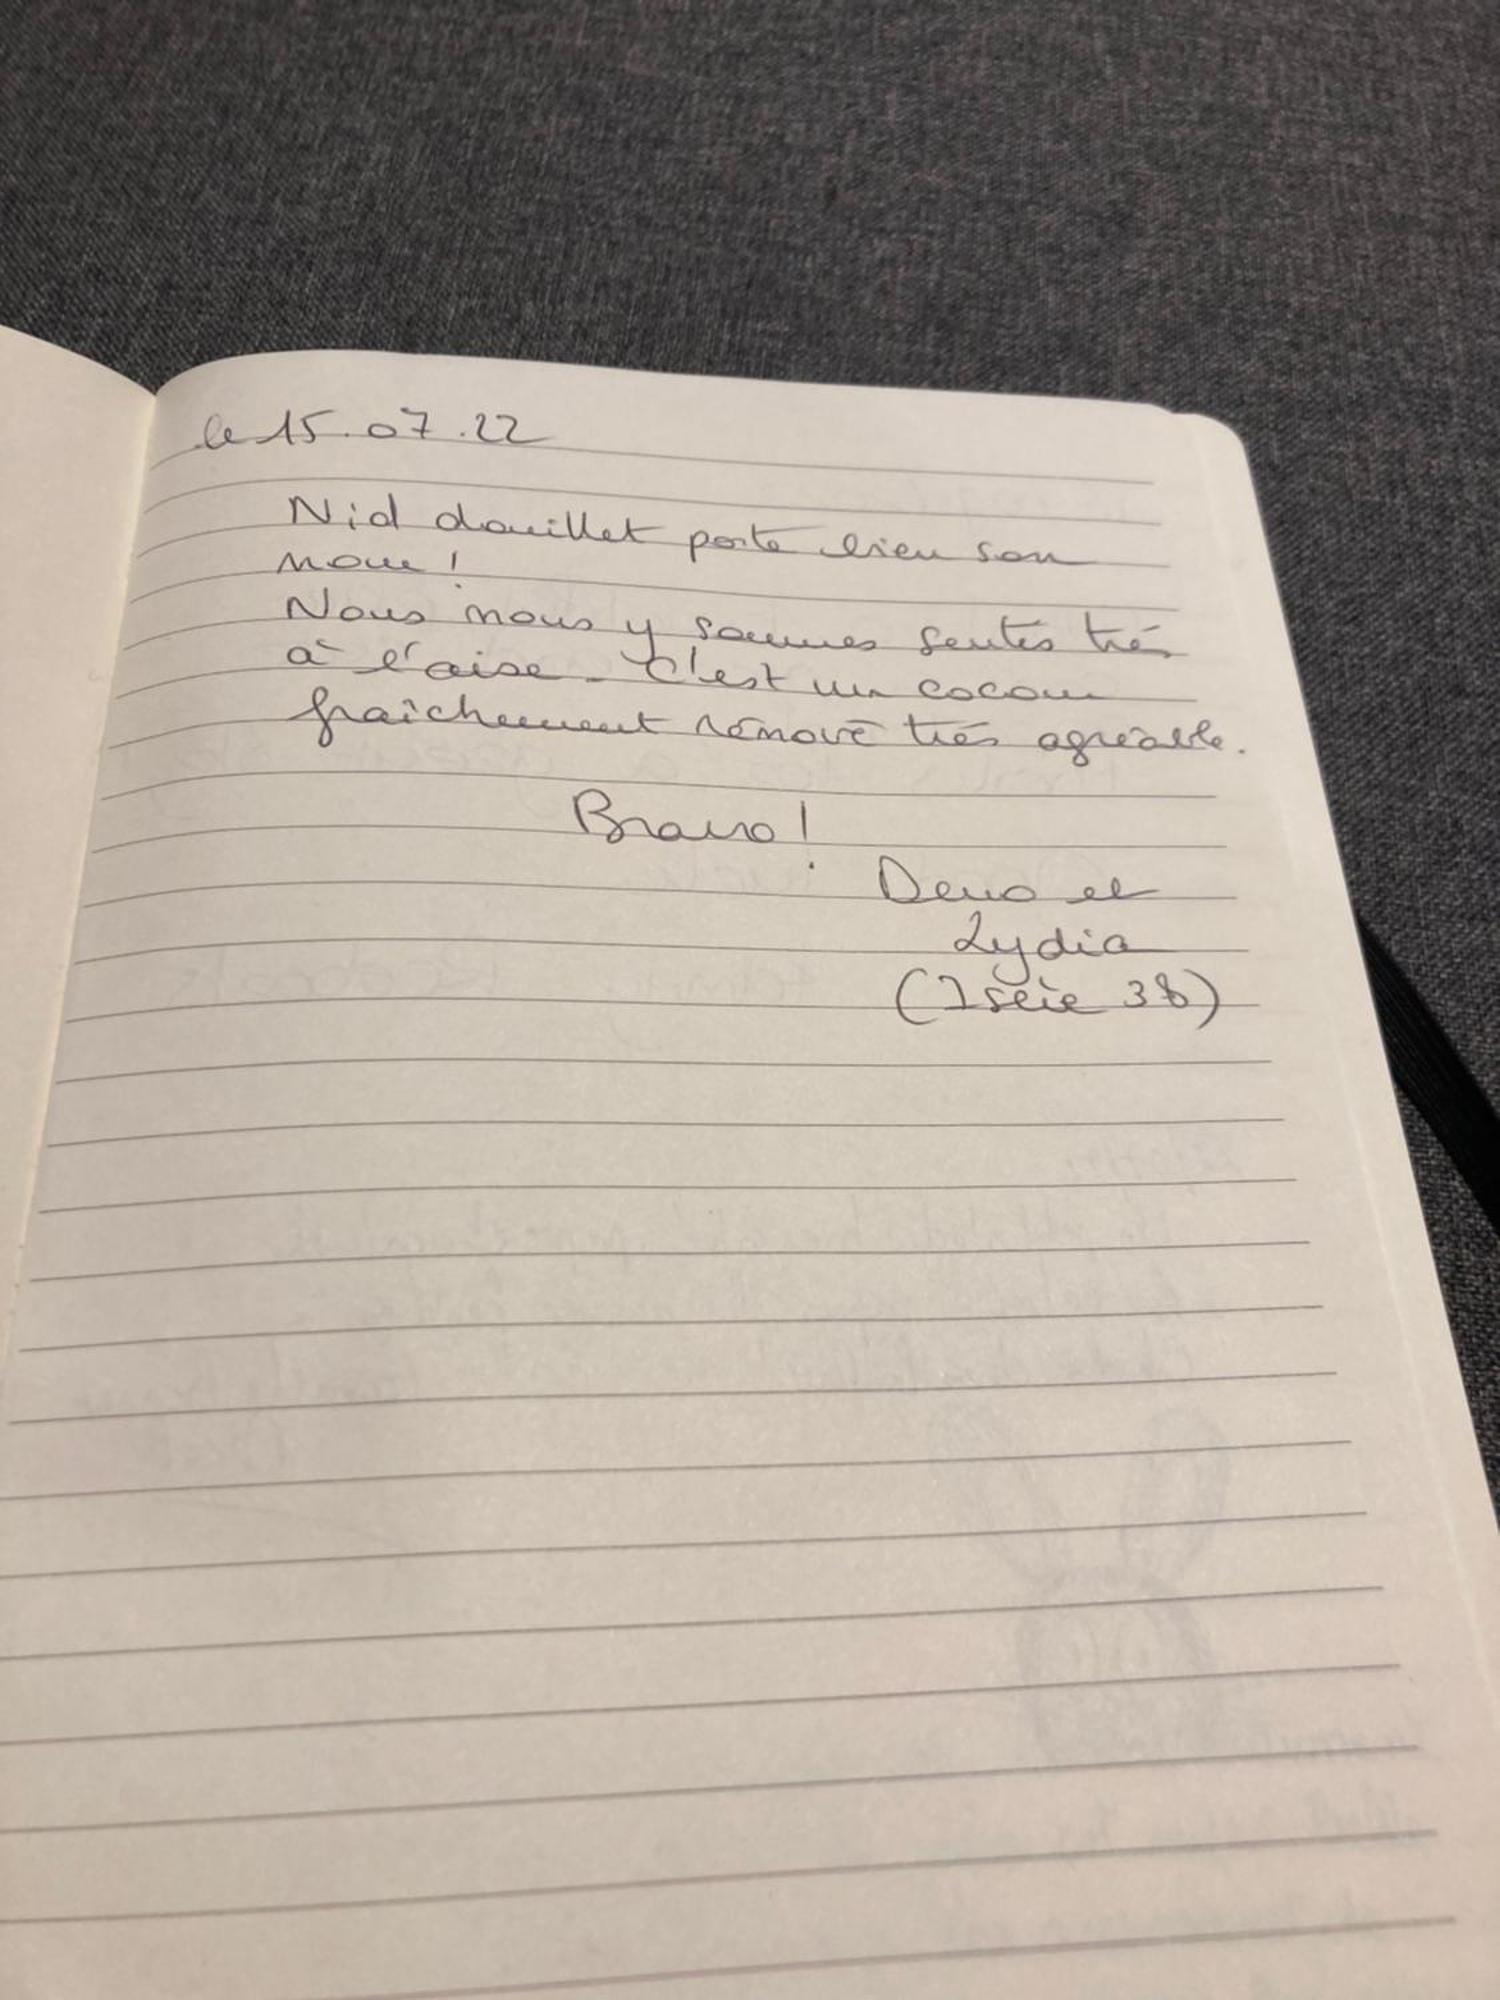 le 15.07.22
Nid douillet porte bien son
nom !
Nous nous y sommes sentis très
à l'aise - C'est un cocon
fraîchement rénové très agréable.
Bravo !
et
Lydia
(Isère 38)